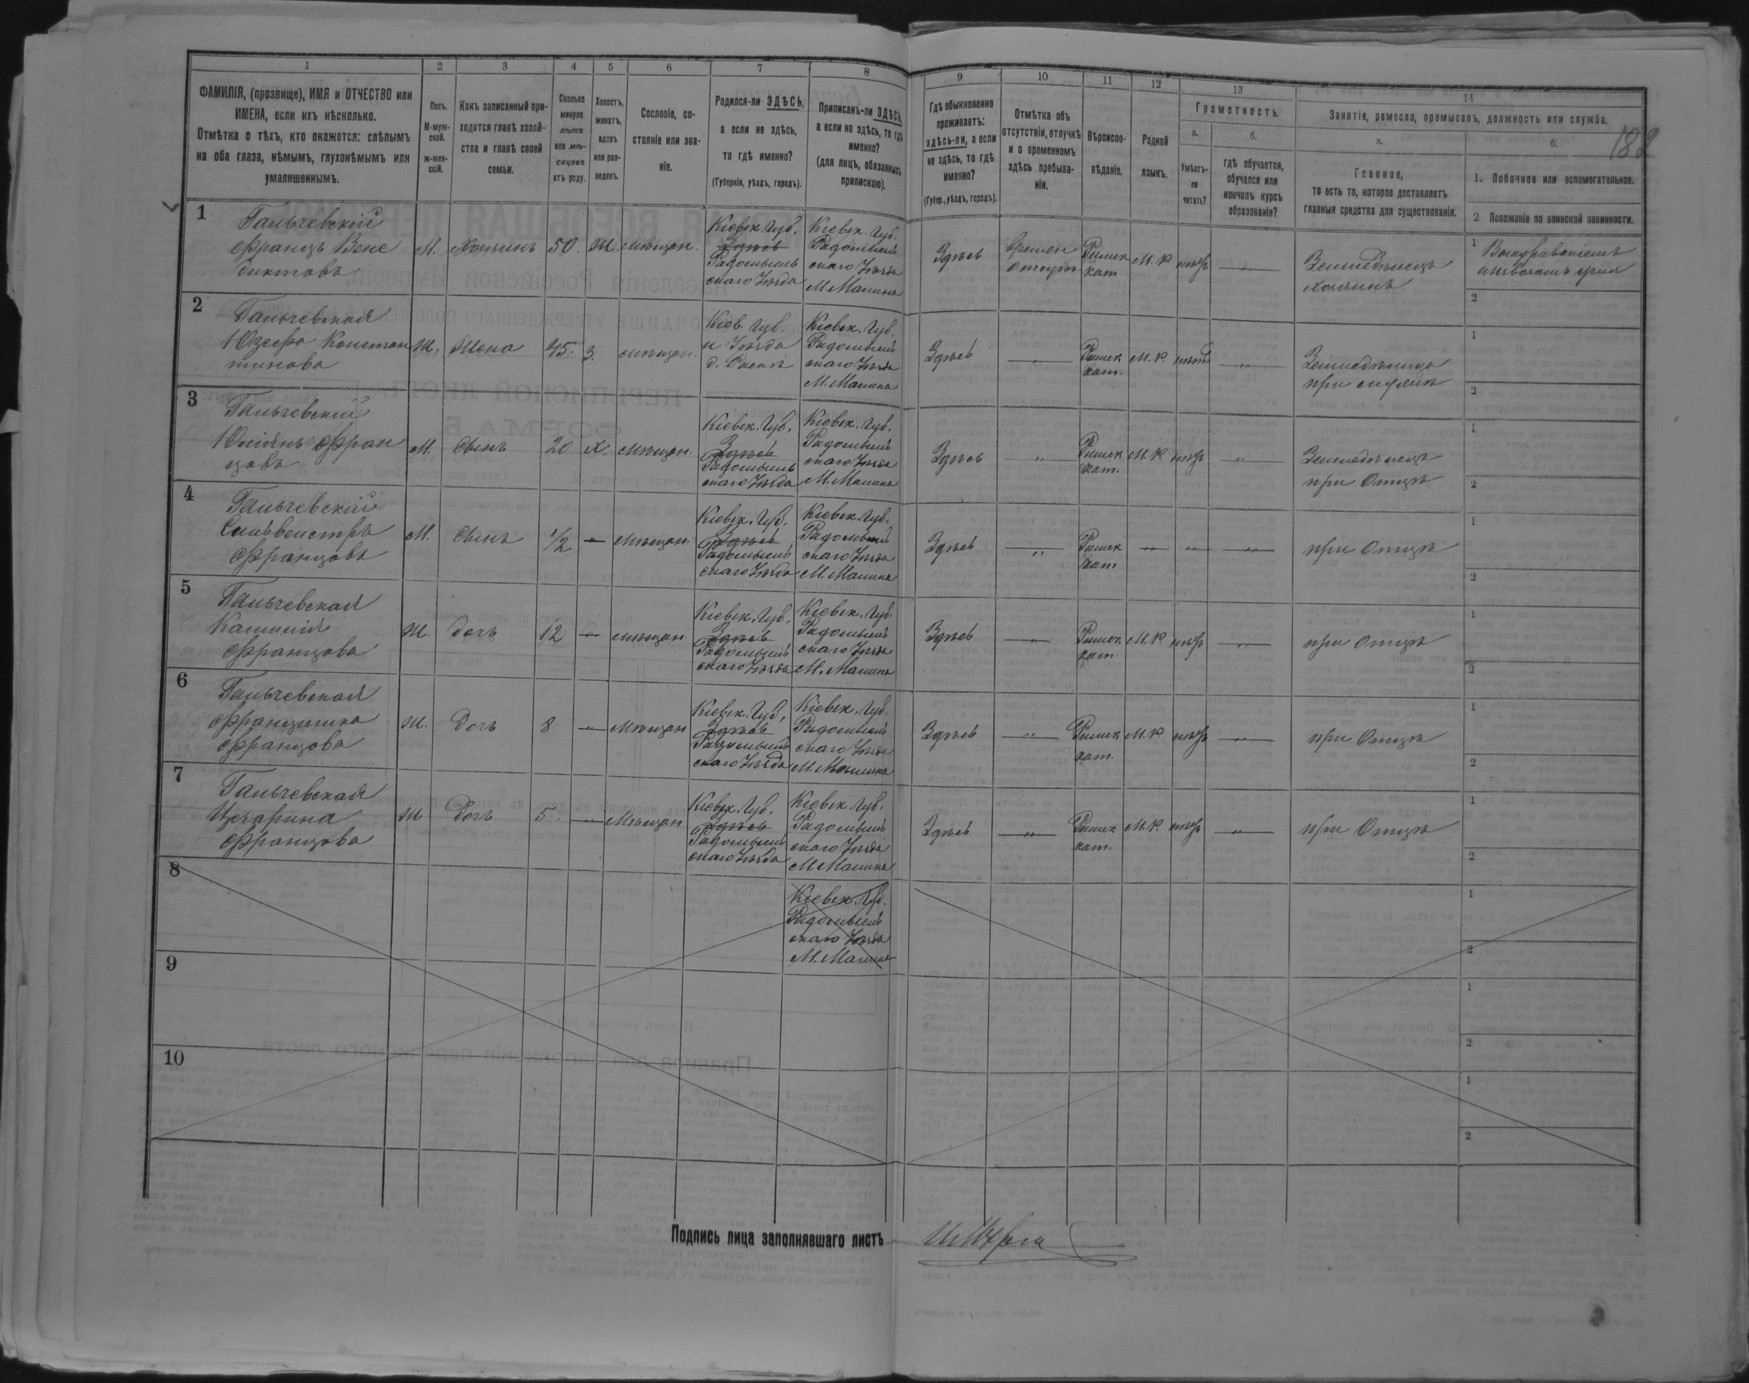 1 2 3 4 5 6 7 8 9 10 11 12 13 14
ФАМИЛІЯ, (прозвище), ИМЯ и ОТЧЕСТВО или
ИМЕНА, если ихъ нѣсколько.
Отмѣтка о тѣхъ, кто окажется: слѣпымъ
на оба глаза, нѣмымъ, глухонѣмымъ или
умалишеннымъ.
Полъ.
М-муж-
ской.
ж-жен-
скій.
Какъ записанный при-
ходится главѣ хозяй-
ства и главѣ своей
семьи.
Сколько
минуло
лѣтъ
или мѣ-
сяцевъ
отъ роду.
Холостъ,
женатъ,
вдовъ
или раз-
веденъ.
Сословіе, со-
стояніе или зва-
ніе.
Родился-ли ЗДѢСЬ,
а если не здѣсь,
то гдѣ именно?
(Губернія, уѣздъ, городъ).
Приписанъ-ли ЗДѢСЬ,
а если не здѣсь, то гдѣ
именно?
(для лицъ, обязанныхъ
припискою).
Гдѣ обыкновенно
проживаетъ:
здѣсь-ли, а если
не здѣсь, то гдѣ
именно?
(Губер., уѣздъ, городъ).
Отмѣтка объ
отсутствіи, отлучкѣ
и о временномъ
здѣсь пребыва-
ніи.
Вѣроиспо-
вѣданіе.
Родной
языкъ.
Грамотность.
а.
Умѣетъ-
ли
читать?
б.
гдѣ обучается,
обучался или
кончилъ курсъ
образованія?
Занятіе, ремесло, промыселъ, должность или служба.
а.
Главное,
то есть то, которое доставляетъ
главныя средства для существованія.
б.
1. Побочное или вспомогательное.
2 Положеніе по воинской повинности.
1
Гальчевскій
Францъ Вене
диктовъ
М. Хозяинъ 50 Ж. мѣщан.
Кіевск. Губ.
Здѣсь
Радомысль
скаго Уѣзда
Кіевск. Губ.
Радомысль
скаго Уѣзда
М. Малина
Здѣсь
Времен
отсут
Римск
кат
Земледѣлецъ
хозяинъ
1
2
2
Гальчевская
Юзефа Констан
тинова
Ж. Жена 45. З. мѣщан.
Кіев. Губ.
и Уѣзда
Кіевск. Губ.
Радомысль
скаго Уѣзда
М. Малина
Здѣсь „
Римск
кат.
1
2
3
Гальчевскій
Юліянъ Фран
цовъ
М. Сынъ 20 Х. мѣщан
Кіевск. Губ.
Здѣсь
Радомысль
скаго Уѣзда
Кіевск. Губ.
Радомысль
скаго Уѣзда
М. Малина
Здѣсь „
Римск
кат.
Земледѣлецъ
при Отцѣ
1
2
4
Гальчевскій
Сильвестръ
Францовъ
М. Сынъ 1/2 — мѣщан
Кіевск. Губ.
Здѣсь
Радомысль
скаго Уѣзда
Кіевск. Губ.
Радомысль
скаго Уѣзда
М. Малина
Здѣсь „
Римск
кат
„ „ „
при Отцѣ
1
2
5
Гальчевская
Францова
Ж. Дочь 12 — мѣщан
Кіевск. Губ.
Здѣсь
Радомысль
скаго Уѣзда
Кіевск. Губ.
Радомысль
скаго Уѣзда
М. Малина
Здѣсь „
Римск
кат
при Отцѣ
1
2
6
Гальчевская
Францишка
Францова
Ж. Дочь 8 — мѣщан
Кіевск. Губ.
Здѣсь
Радомысль
скаго Уѣзда
Кіевск. Губ.
Радомысль
скаго Уѣзда
М. Малина
Здѣсь „
Римск
кат.
при Отцѣ
1
2
7
Гальчевская
Цезарина
Францова
Ж Дочь 5 — мѣщан
Кіевск. Губ.
Здѣсь
Радомысль
скаго Уѣзда
Кіевск. Губ.
Радомысль
скаго Уѣзда
М. Малина
Здѣсь „
Римск
кат.
при Отцѣ
1
2
8
Кіевск. Губ.
Радомысль
скаго Уѣзда
М. Малина
1
2
9
1
2
10
1
2
Подпись лица заполнявшаго листъ